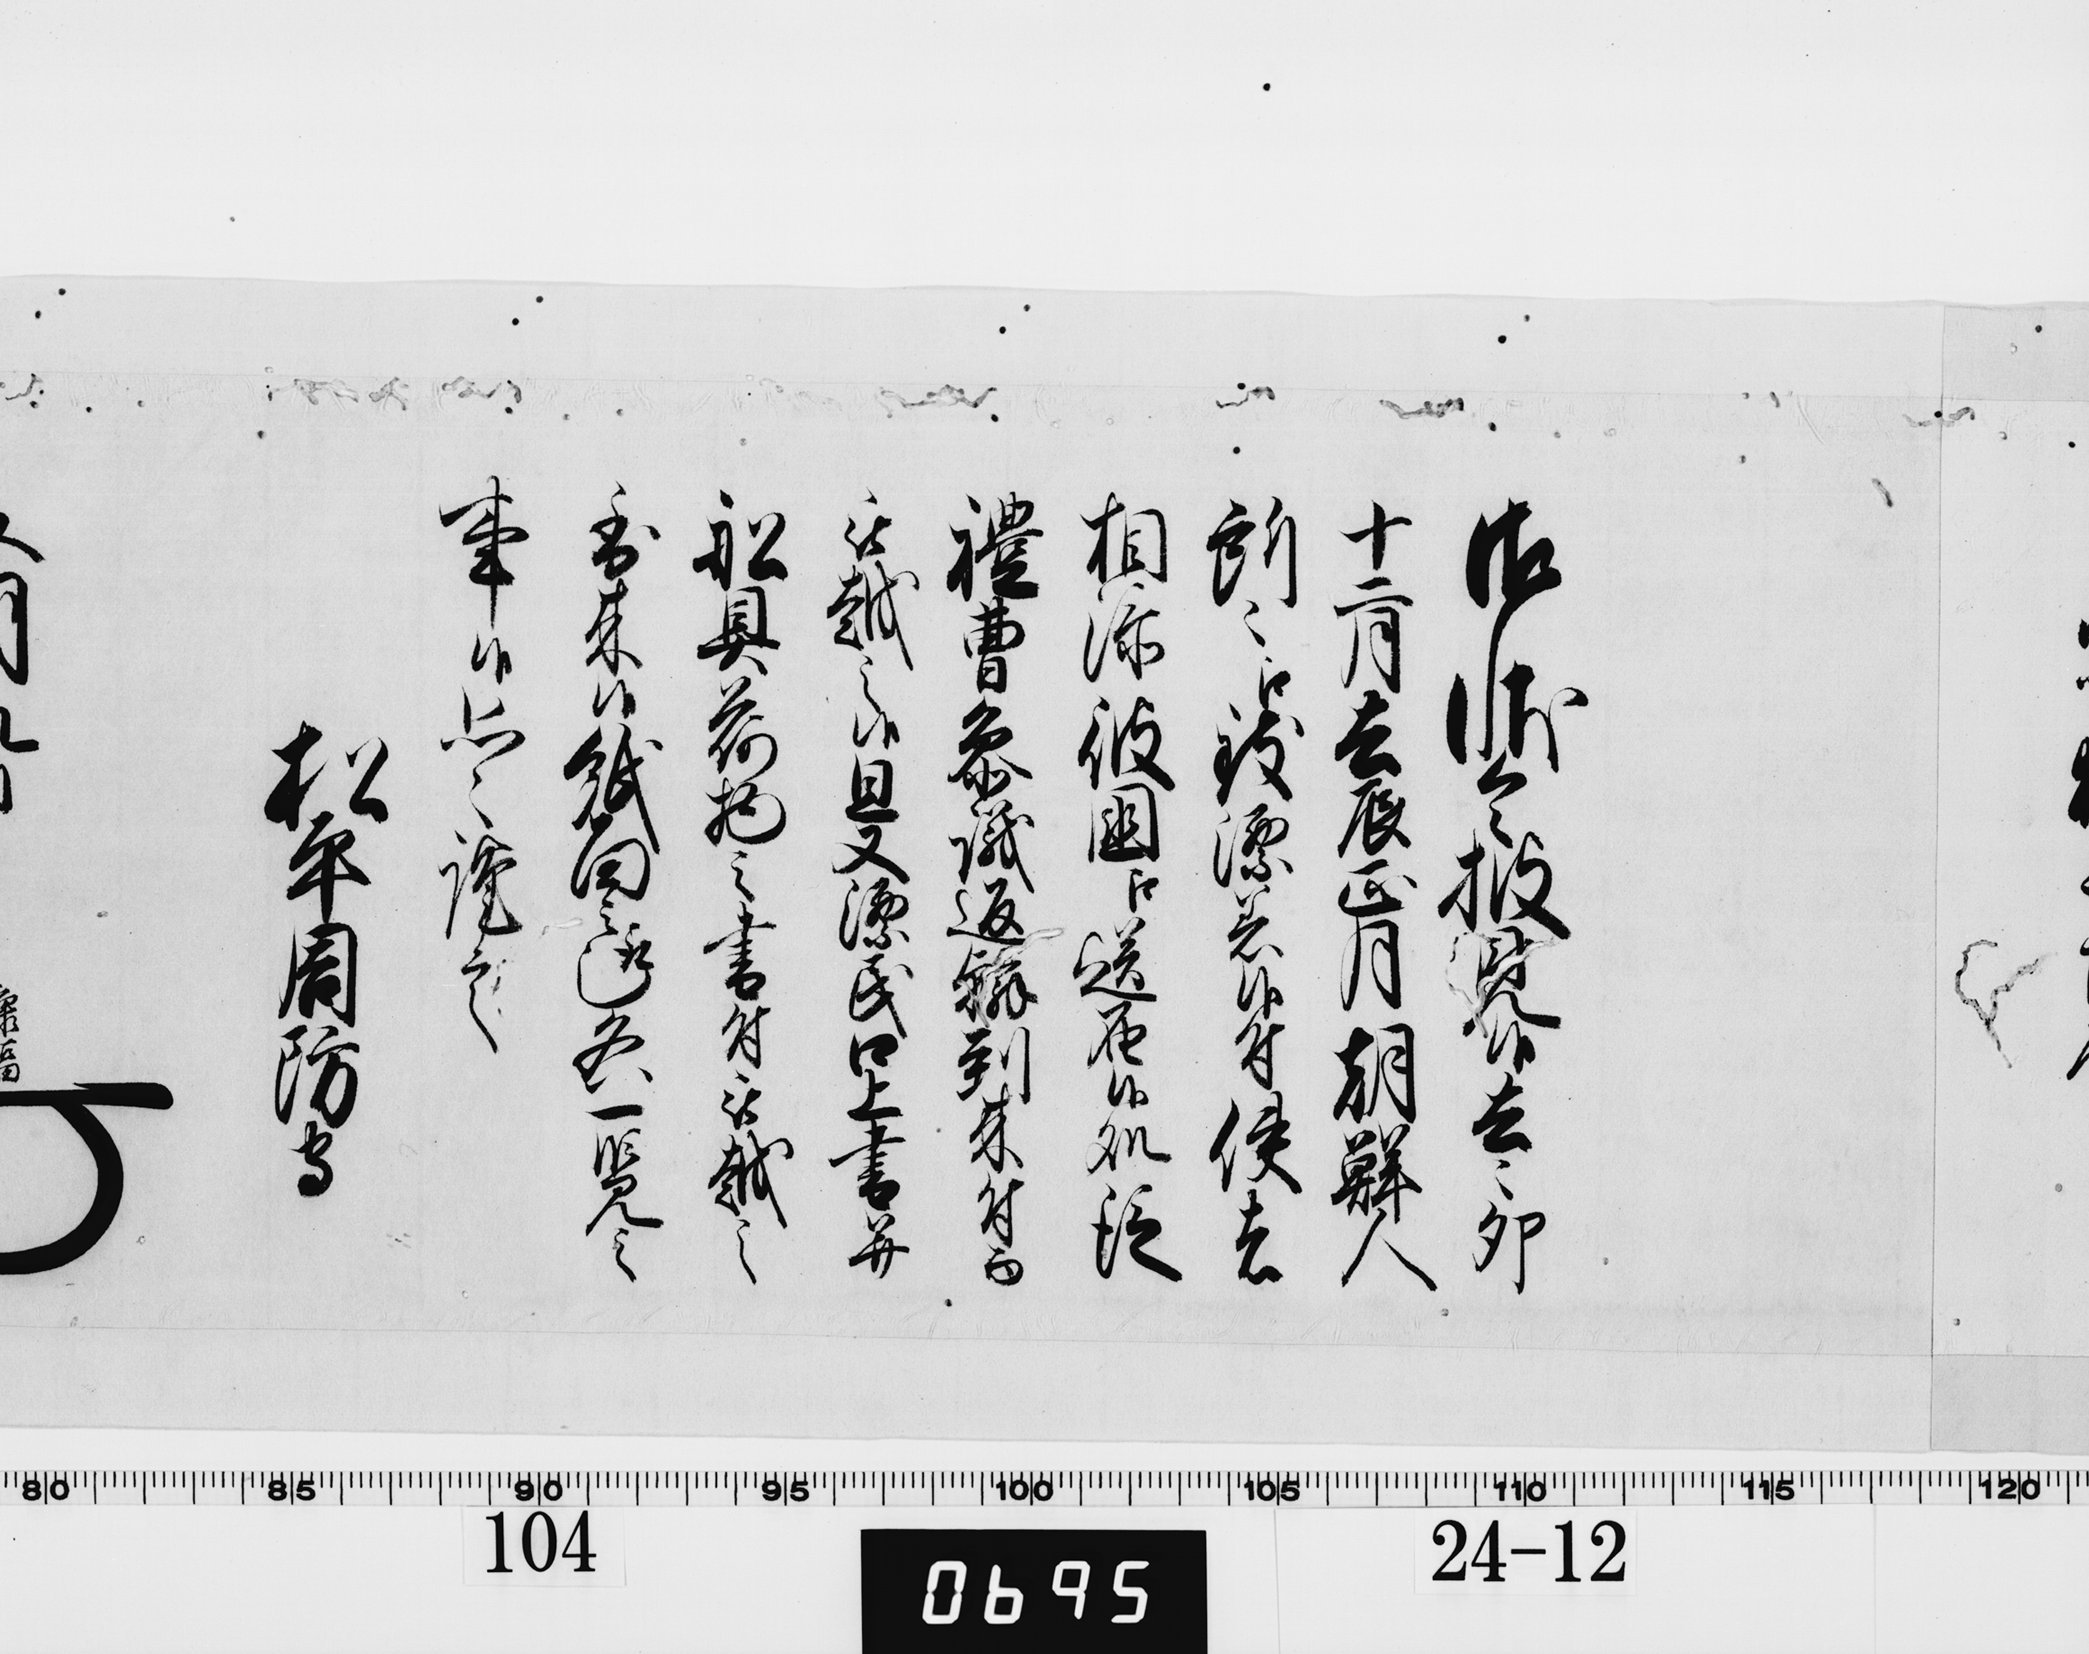 御状令披見候去々卯
十二月去辰正月朝鮮人
所々江致漂着候付使者
相添彼国江送届候処従
禮曹参議返翰到来付而
被越之候且又漂民口上書并
船具荷物之書付被越之
到来候紙面之趣各一覧之
事候恐々謹言
松平周防守
80 85 90 95 100 105 110 115 120
104
0695
24-12